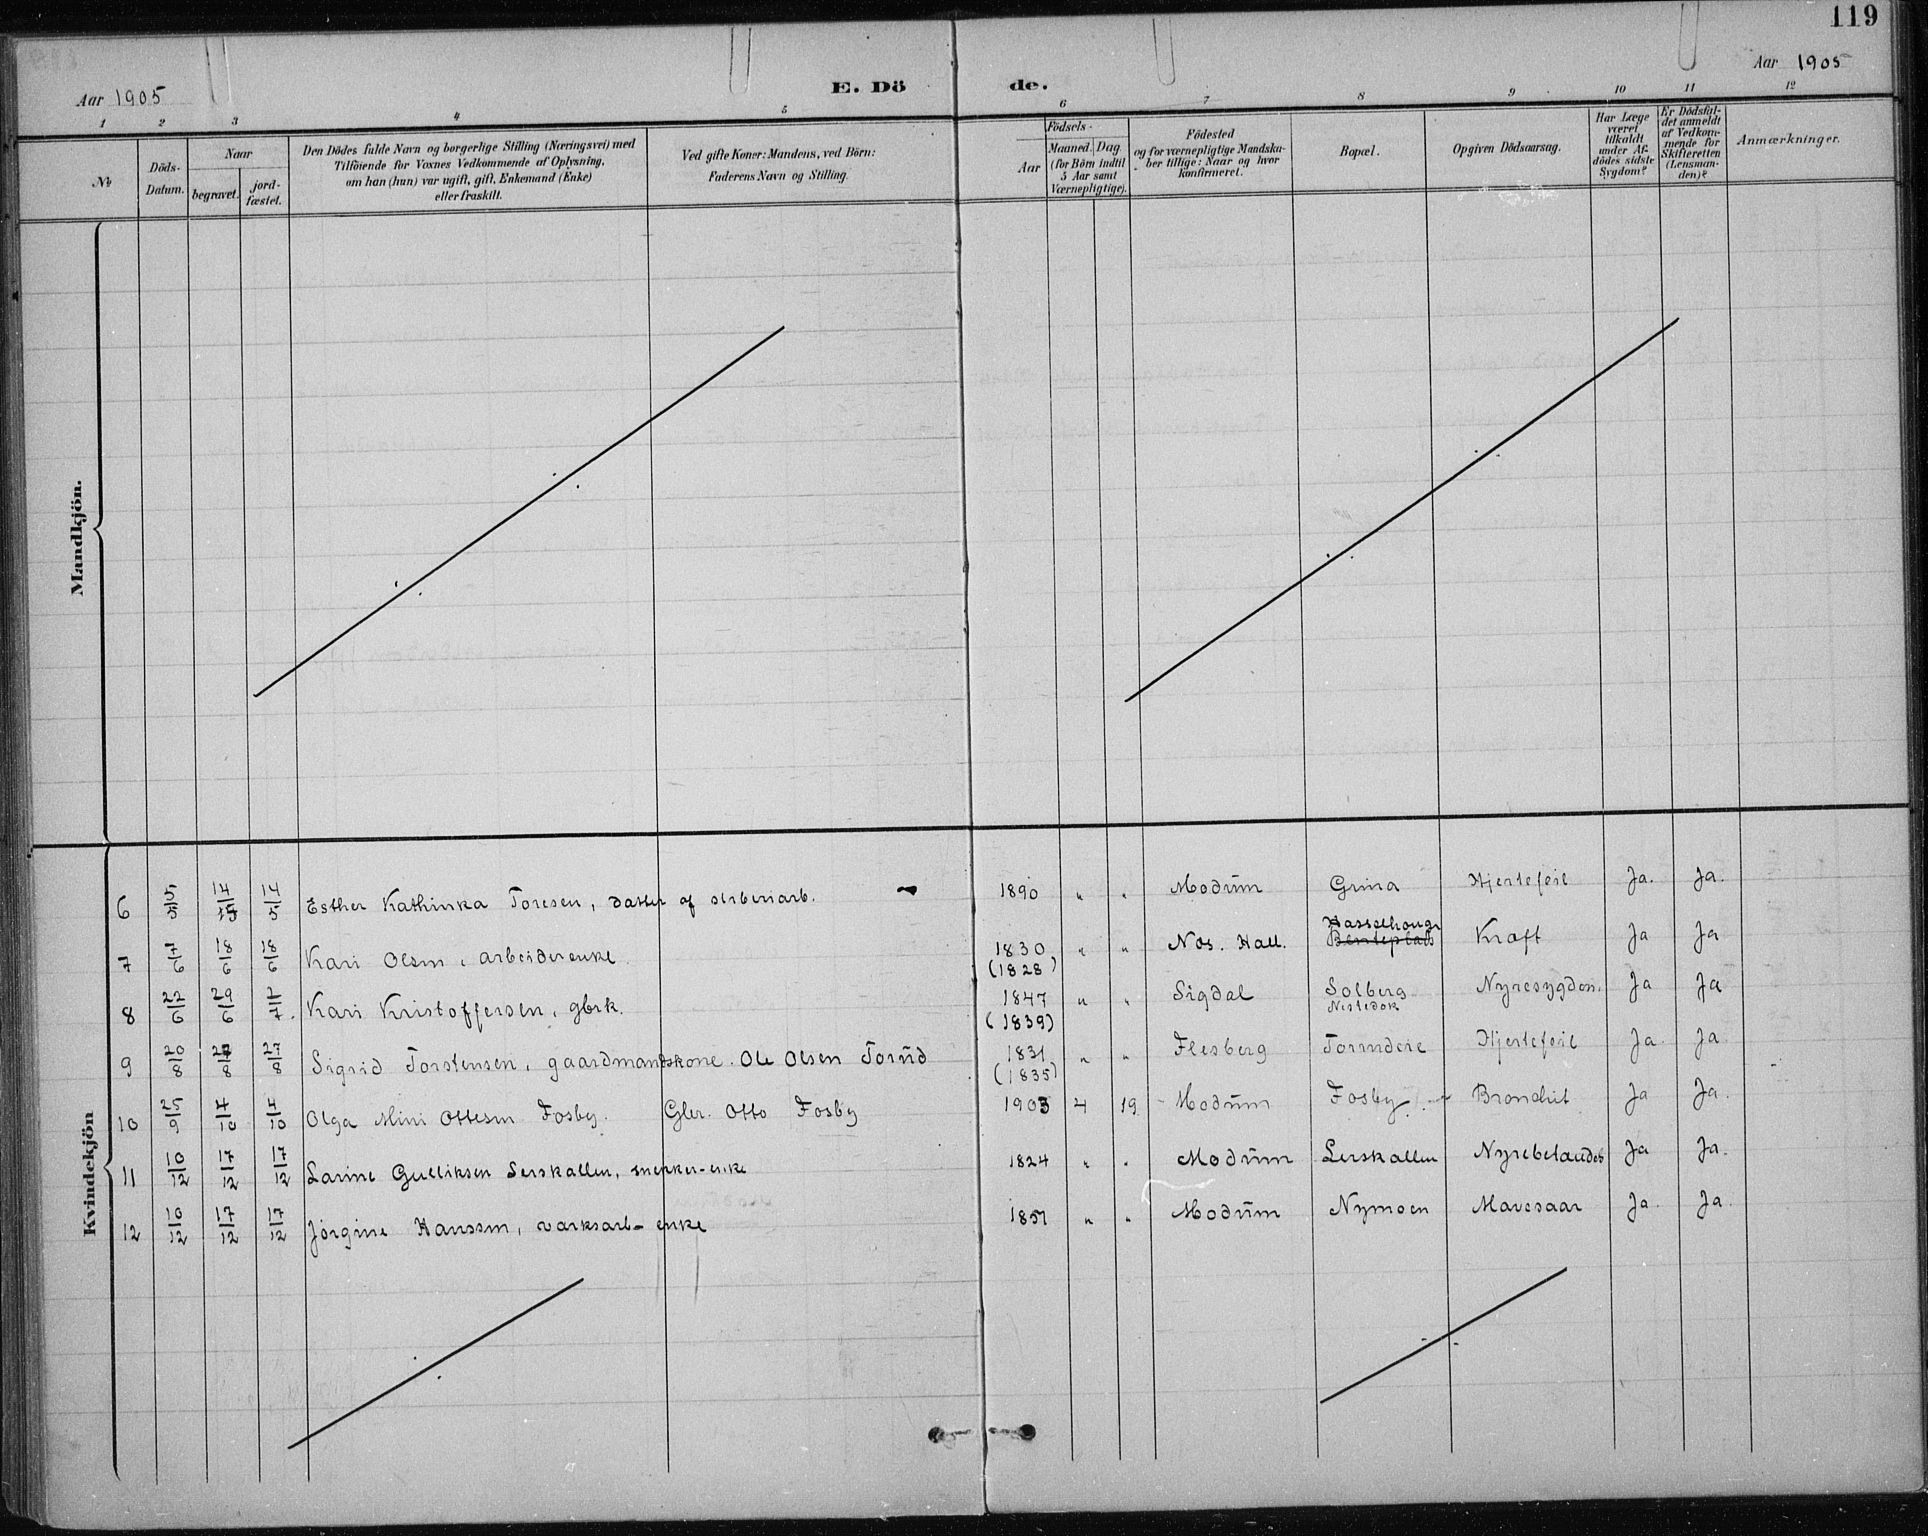 119
Aar 1905
E. Dö de.
Aar 1905
1 2 3 4 5 6 7 8 9 10 11 12
№
Döds-Datum.
Naar
begravet.
jord-fæstet.
Den Dödes fulde Navn og borgerlige Stilling (Næringsvei) med
Tilföiende for Voxnes Vedkommende af Oplysning,
om han (hun) var ugift, gift, Enkemand (Enke)
eller fraskilt.
Ved gifte Koner: Mandens, ved Börn:
Faderens Navn og Stilling.
Födsels-
Aar
Maaned. Dag.
(for Börn indtil
5 Aar samt
Værnepligtige).
Födested
og for værnepligtige Mandska-
ber tillige: Naar og hvor
konfirmeret.
Bopæl.
Opgiven Dödsaarsag.
Har Læge
været
tilkaldt
under Af-
dödes sidste
Sygdom?
Er Dödsfal-
det anmeldt
af Vedkom-
mende for
Skifteretten
(Lensman-
den)?
Anmærkninger.
Mandkjön.
Kvindekjön
6 5/5 14/5 14/5 Esther Kathinka Toresen, datter af sliberiarb. 1890 " " Modum Grina Hjertefeil Ja. Ja.
Hasselhaugn
7 7/6 18/6 18/6 Kari Olsen, arbeiderenke. 1830 " " Nos. Hall. Kraft Ja Ja
(1828)
8 22/6 29/6 2/7. Kari Kristoffersen, gbrk. 1847 " " Sigdal Solberg Nyresygdom. Ja Ja
(1839) Nestedok
9 20/8 27/8 27/8 Sigrid Torstensen, gaardmandskone. Ole Olsen Torud 1831 " " Flesberg Torudeie Hjertefeil Ja Ja
(1835)
10 25/9 4/10 4/10 Olga Mini Ottesen Fosby. Gbr. Otto Fosby 1903 4 19 Modum Fosby Bronchit Ja Ja.
11 10/12 17/12 17/12 Larine Gulliksen Lerskallen, snekker-enke 1824 " " Modum Lerskallen Nyrebetændels Ja Ja.
12 10/12 17/12 17/12 Jörgine Hanssen, værksarb-enke 1851 " " Modum Nymoen Mavesaar Ja. Ja